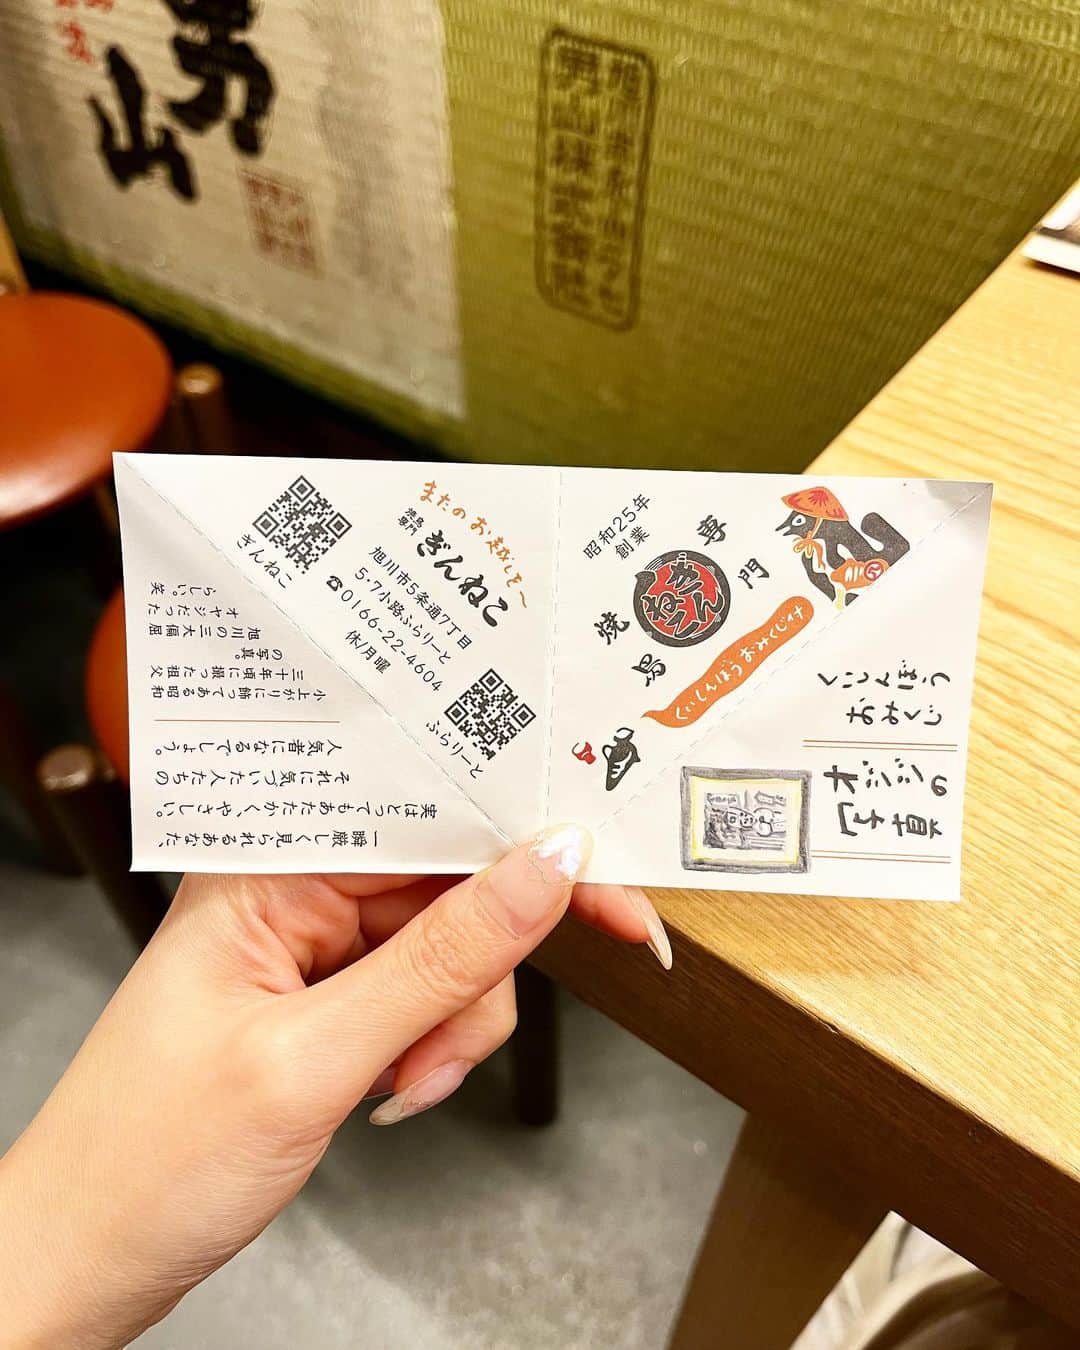 男山
男山株式會社
またのお越しを〜
焼鳥
専門
ぎんねこ
旭川市5条通7丁目
5・7小路ふらりーと
☎0166-22-4604
休/月曜
ぎんねこ
ふらりーと
昭和25年
創業
焼鳥
専門
ぎんねこ
くいしんぼうおみくじ付
くいしんぼう
おみくじ
オジジの
写真
一瞬厳しく見られるあなた、
実はとってもあたたかく、やさしい。
それに気づいた人たちの
人気者になるでしょう。
小上がりに飾ってある昭和
三十年頃に撮った祖父
の写真。
旭川の三大偏屈
オヤジだった
らしい。笑